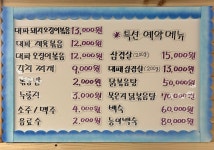 대파 돼지오징어볶음 13,000원
대파 제육볶음 12,000원
대파 오징어볶음 12,000원
김치찌개 9,000원
볶음밥 2,000원
누룽지 3,000원
소주 / 맥주 4,000원
음료수 2,000원
특선 예약메뉴
삼겹살 15,000원
대패삼겹살 13,000원
닭볶음탕 50,000원
묵은지 닭볶음탕
백숙 60,000원
능이백숙 80,000원